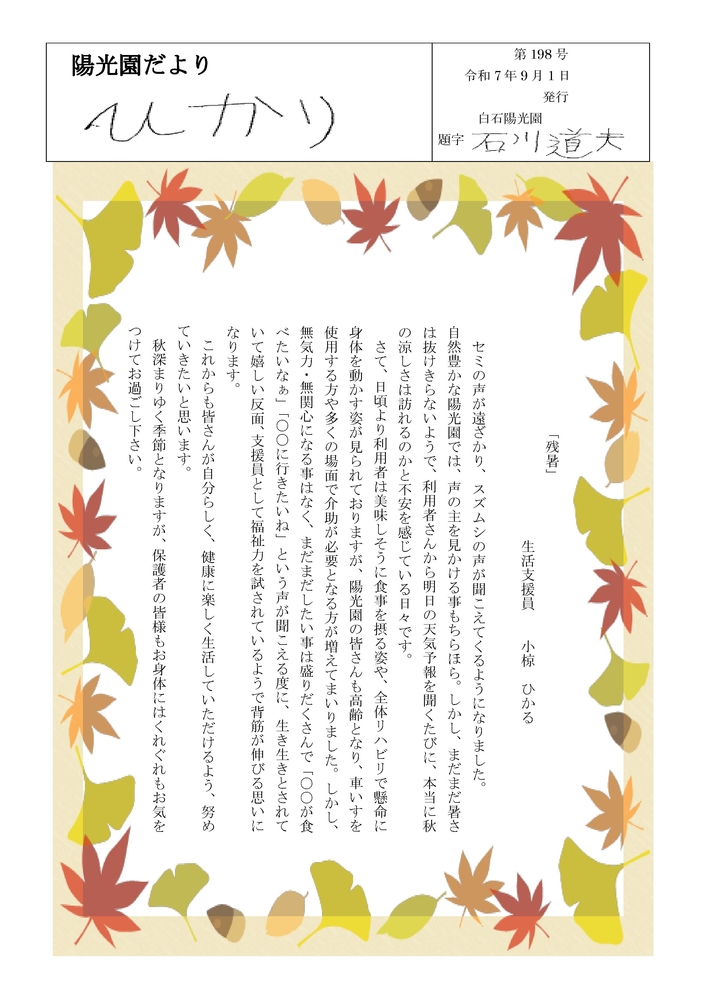 陽光園だより
ひかり
第 198 号
令和 7 年 9 月 1 日
発行
白石陽光園
題字 石川道夫
「残暑」
生活支援員 小椋 ひかる
セミの声が遠ざかり、スズムシの声が聞こえてくるようになりました。
自然豊かな陽光園では、声の主を見かける事もちらほら。しかし、まだまだ暑さ
は抜けきらないようで、利用者さんから明日の天気予報を聞くたびに、本当に秋
の涼しさは訪れるのかと不安を感じている日々です。
さて、日頃より利用者は美味しそうに食事を摂る姿や、全体リハビリで懸命に
身体を動かす姿が見られておりますが、陽光園の皆さんも高齢となり、車いすを
使用する方や多くの場面で介助が必要となる方が増えてまいりました。しかし、
無気力・無関心になる事はなく、まだまだしたい事は盛りだくさんで「〇〇が食
べたいなぁ」「〇〇に行きたいね」という声が聞こえる度に、生き生きとされて
いて嬉しい反面、支援員として福祉力を試されているようで背筋が伸びる思いに
なります。
これからも皆さんが自分らしく、健康に楽しく生活していただけるよう、努め
ていきたいと思います。
秋深まりゆく季節となりますが、保護者の皆様もお身体にはくれぐれもお気を
つけてお過ごし下さい。